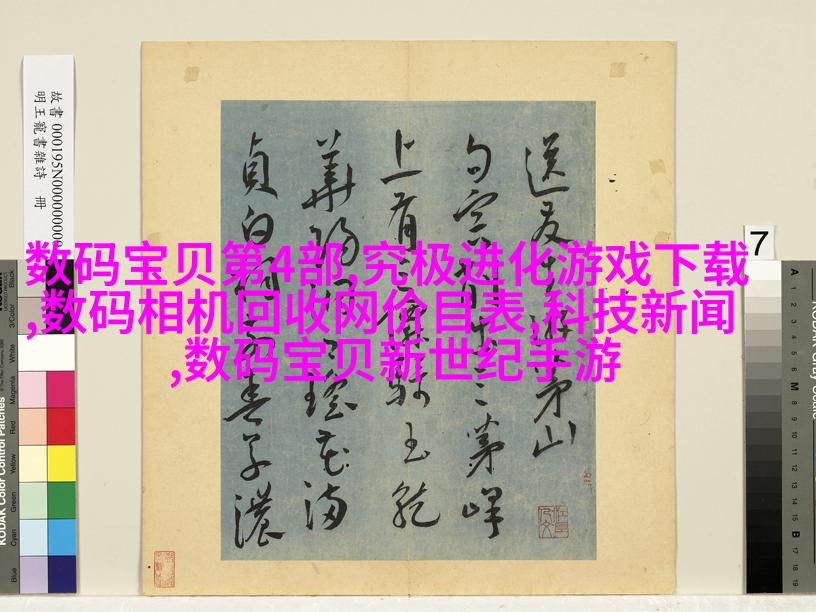 故書 000195N0000000000
明王寵書雜詩 冊
数码宝贝第4部,究极进化游戏下载
,数码相机回收网价目表,科技新闻
,数码宝贝新世纪手游
送友生游茅山
句容三茅峰
上有騎玉龍
華陽洞瑤花滿
貞白春草濃
7
KODAK Color Control Patches
Blue
Cyan
Green
Yellow
Red
Magenta
White
3/Color
Black
A
1
2
3
4
5
6
M
8
9
10
11
12
13
14
15
B
17
18
19